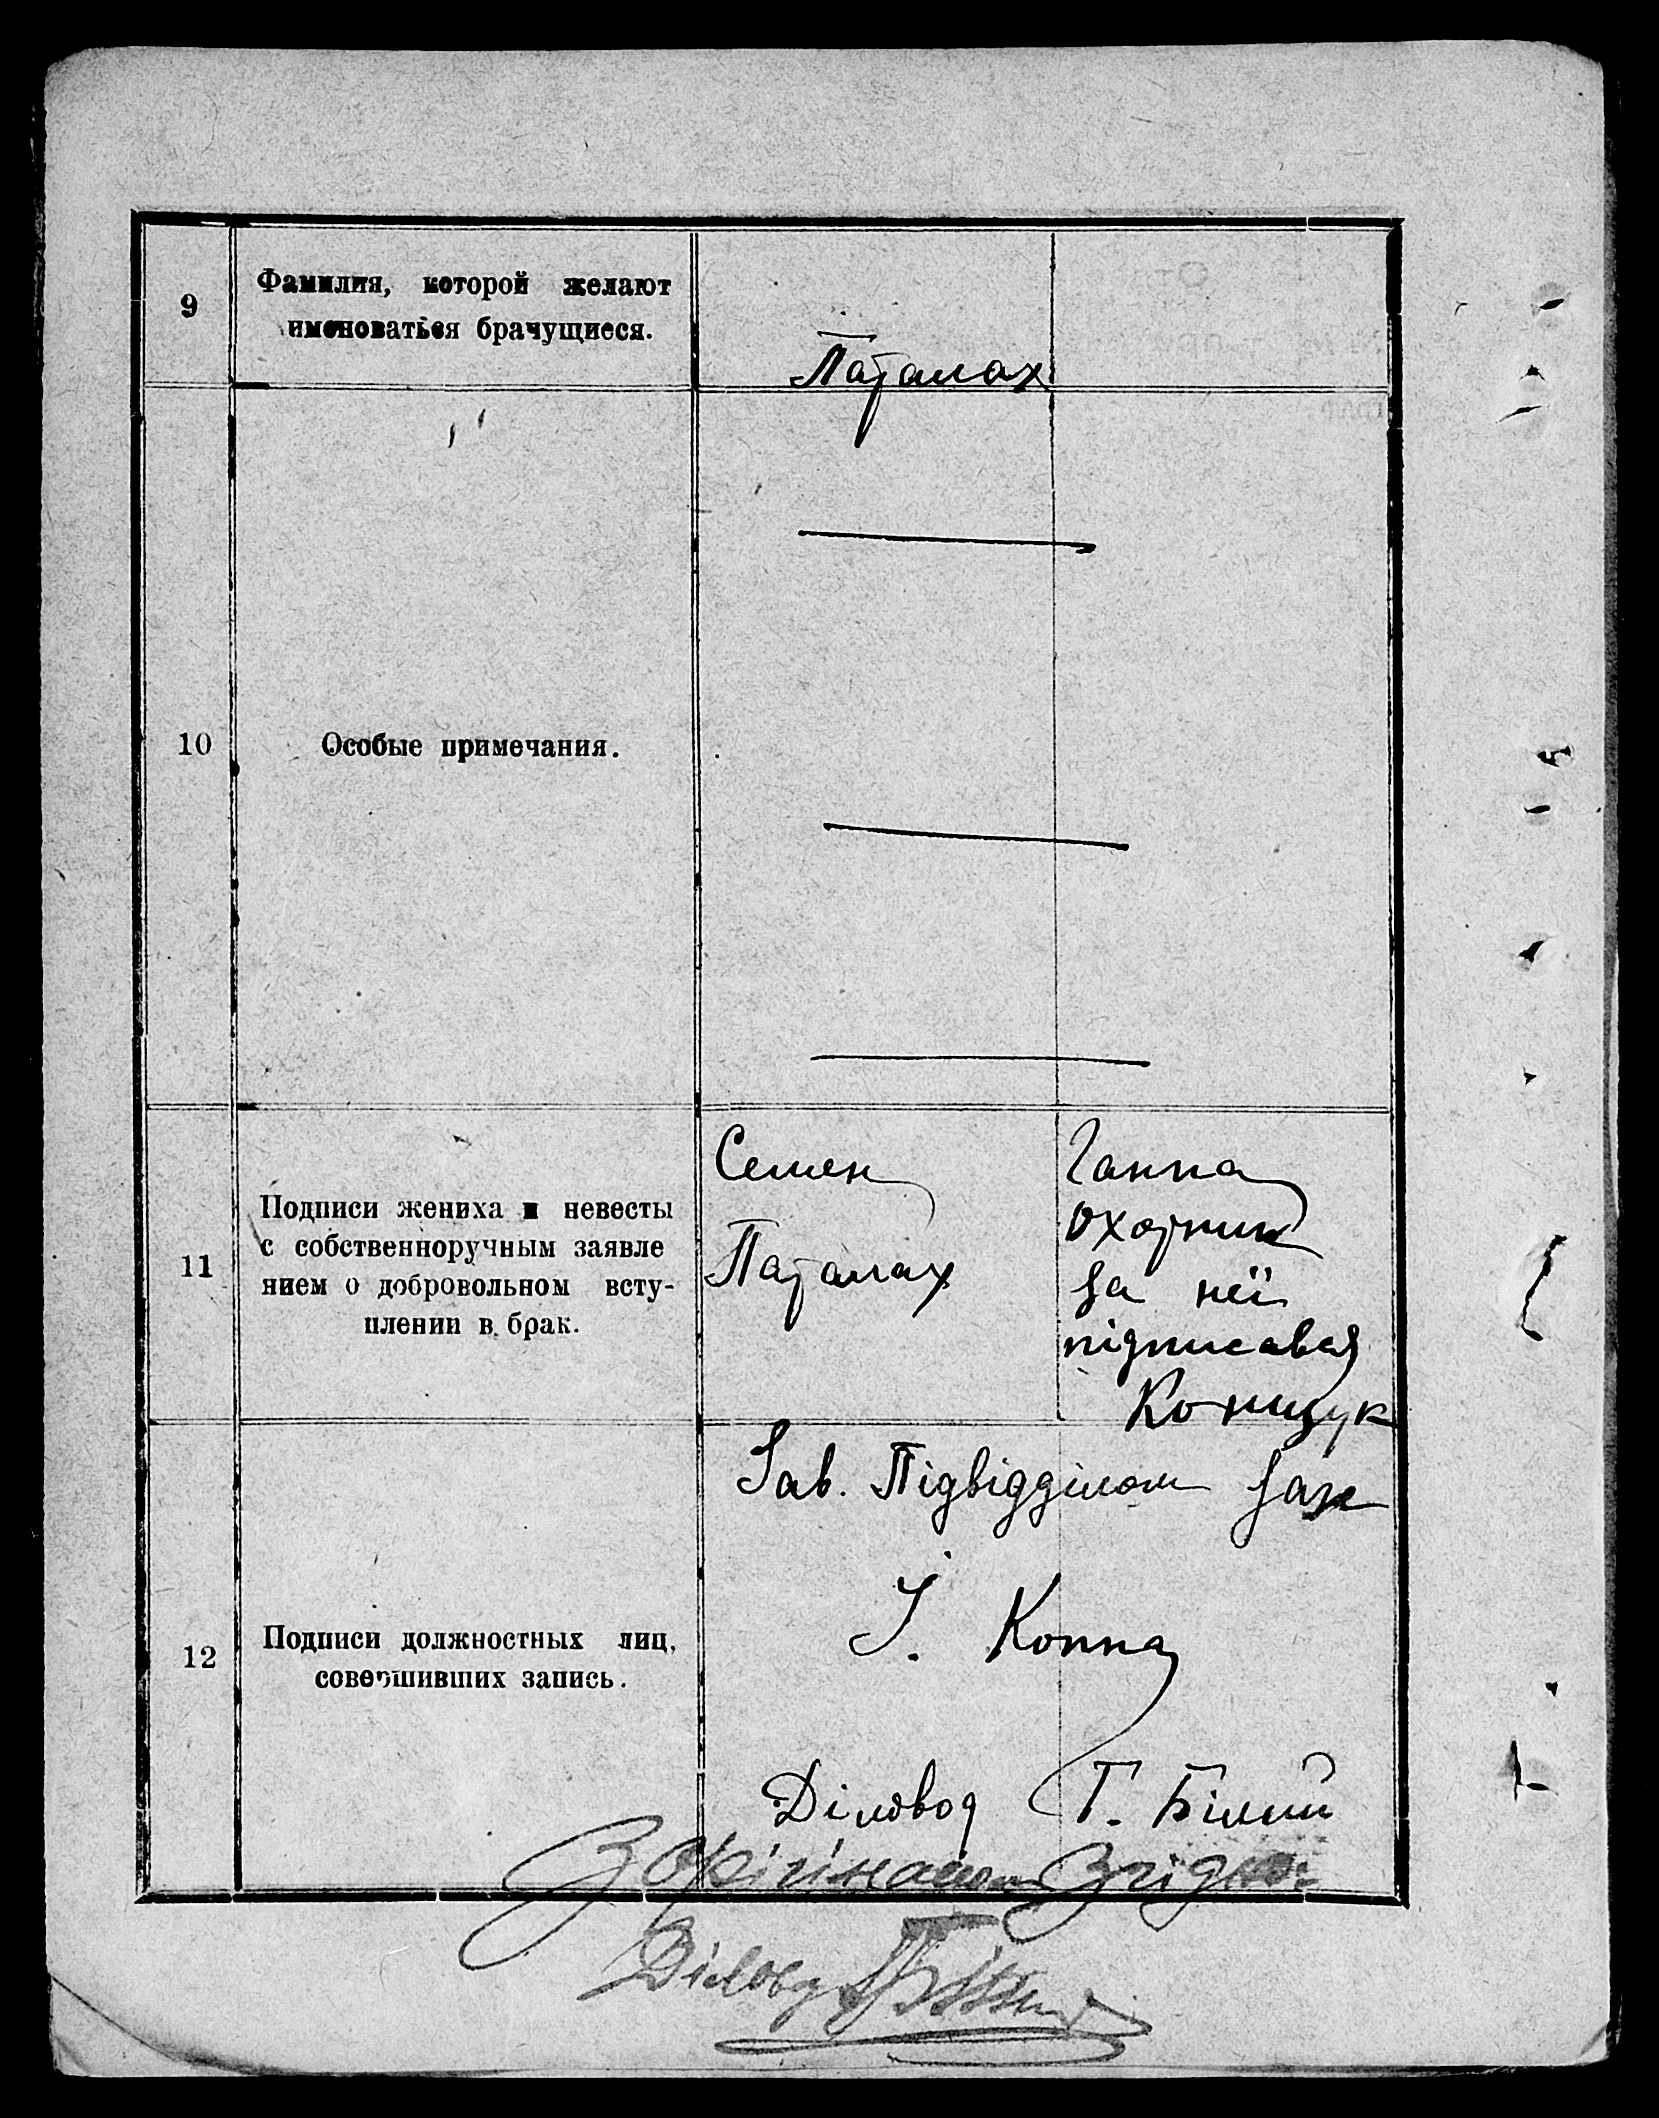 9
Фамилия, которой желают
именоваться брачущиеся.
Паталах
10
Особые примечания.
11
Подписи жениха и невесты
с собственноручным заявле
нием о добровольном всту-
плении в брак.
Семен
Паталах
Ганна
Охотник
за неї
підписався
12
Подписи должностных лиц,
совершивших запись.
Зав. Підвідділом Загс
І. Коппа
Діловод Г. Білий
З орігіналом згідно:
Діловод Г Білий